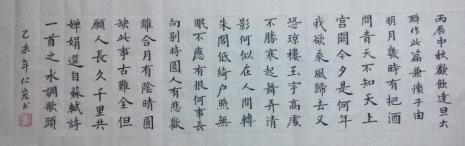 丙辰中秋歡飲達旦大
醉作此篇兼懷子由
明月幾時有把酒
問青天不知天上
宮闕今夕是何年
我欲乘風歸去又
恐瓊樓玉宇高處
不勝寒起舞弄清
影何似在人間轉
朱閣低綺户照無
眠不應有恨何事長
向別時圓人有悲歡
離合月有陰晴圓
缺此事古難全但
願人長久千里共
嬋娟選自蘇軾詩
一首之水調歌頭
乙未年仁宏書